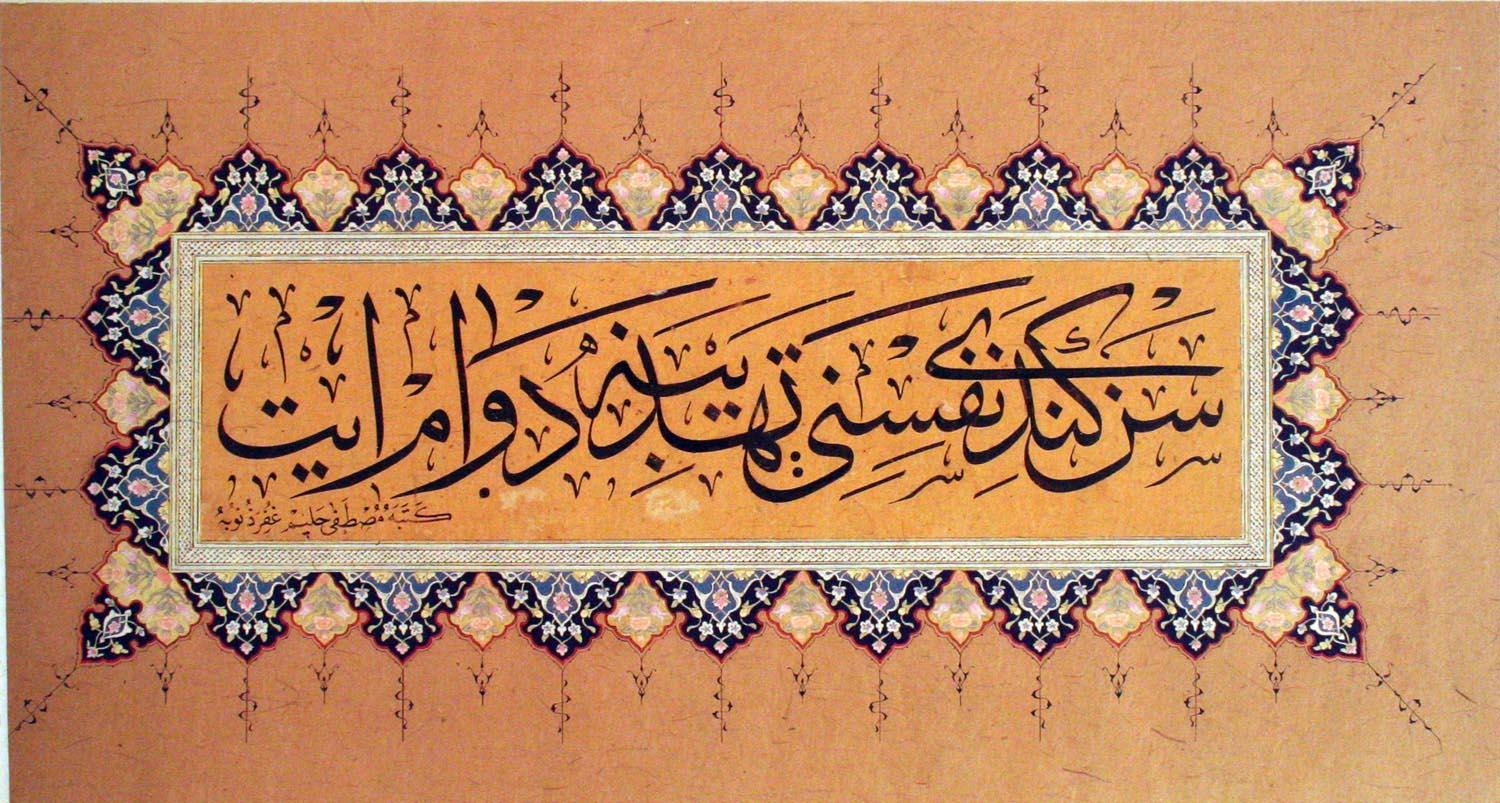 سن کندی نفسنی تهذیبنه دوام ایت
کتبه مصطفی حلیم غفر ذنوبه